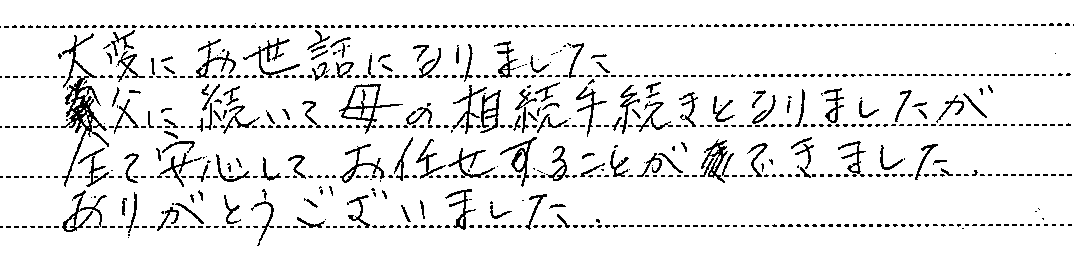 大変にお世話になりました
父に続いて母の相続手続きとなりましたが
全て安心してお任せすることができました.
ありがとうございました.